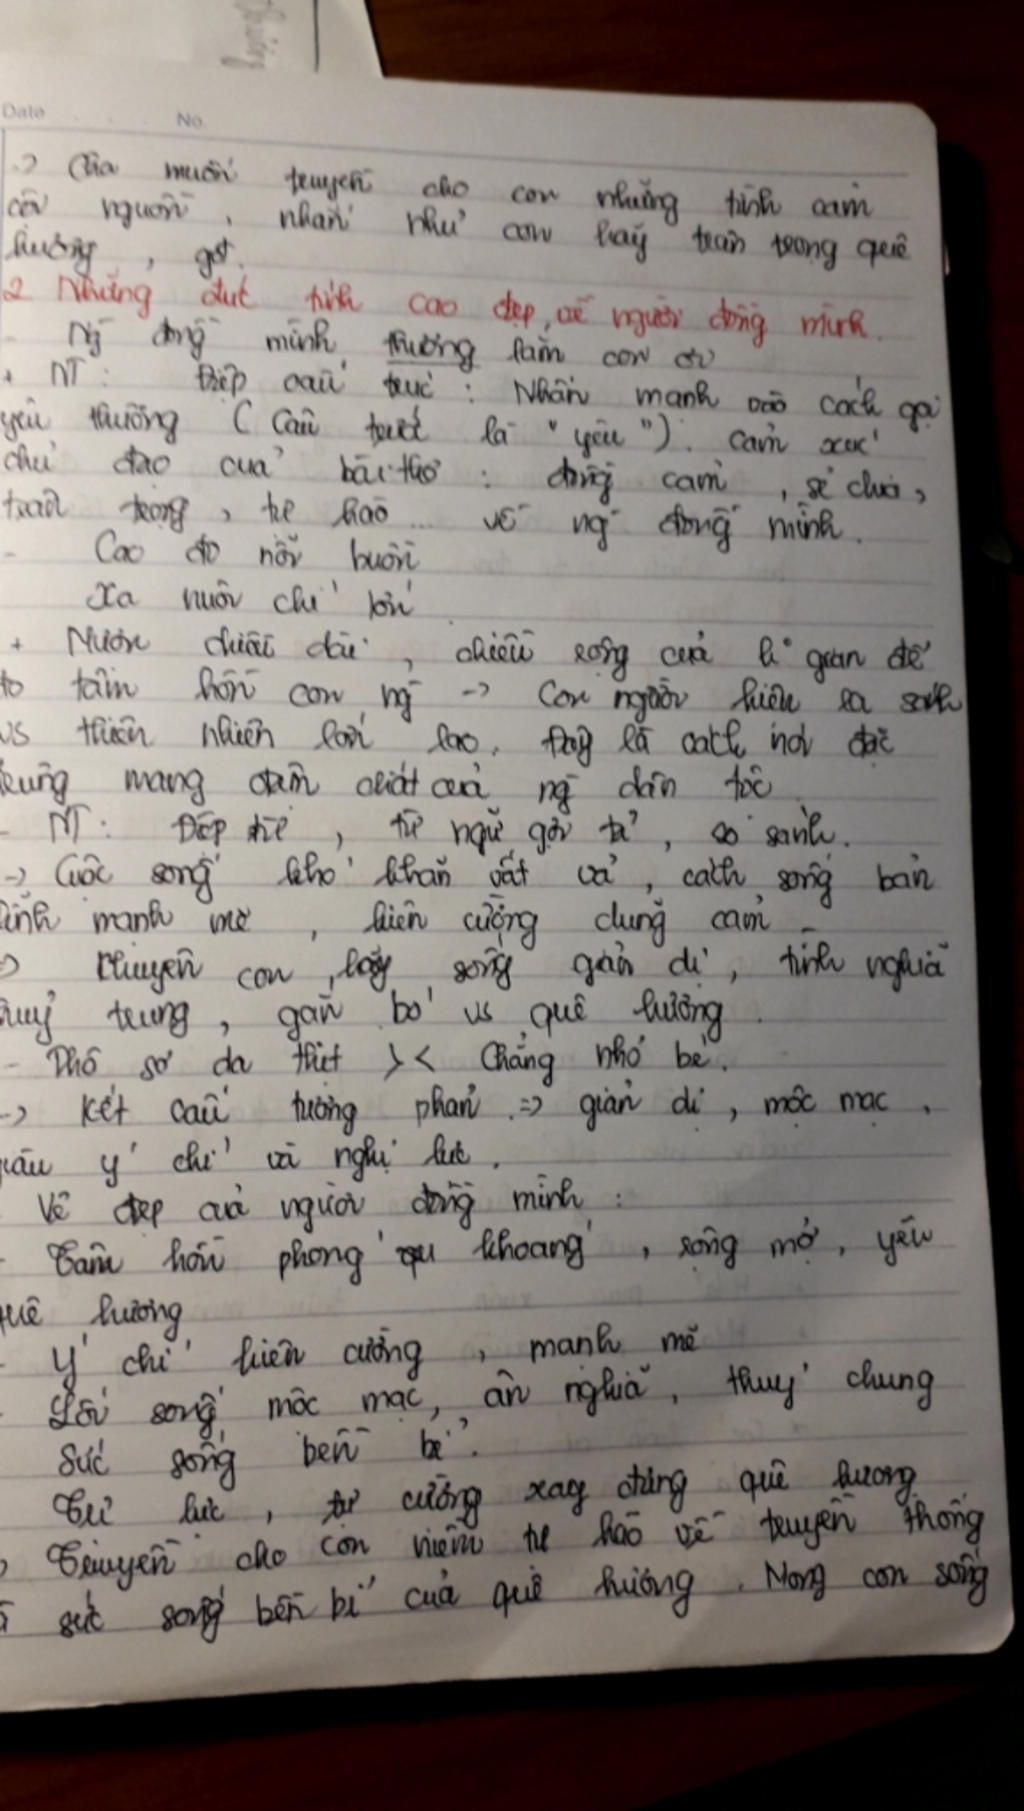 Date No
-> Cha muốn truyền cho con những tình cảm
cội nguồn, nhắn như con hãy trân trọng quê
hương, gđ.
2 Những đức tính cao đẹp về người đồng mình.
- Ng đồng mình thương lắm con ơi
+ NT: Điệp cấu trúc: Nhấn mạnh vào cách gọi
yêu thương (Câu trước là "yêu"). Cảm xúc
chủ đạo của bài thơ: đồng cảm, sẻ chia,
trân trọng, tự hào... về ng đồng mình.
- Cao đo nỗi buồn
Xa nuôi chí lớn
+ Mượn chiều dài, chiều rộng của k gian để
đo tâm hồn con ng -> Con người hiện ra sánh
vs thiên nhiên lớn lao. Đây là cách nói đặc
trưng mang đậm chất của ng dân tộc
- NT: Điệp từ, từ ngữ gợi tả, so sánh.
-> Cuộc sống khó khăn vất vả, cách sống bản
lĩnh mạnh mẽ, kiên cường dũng cảm
=> Khuyên con hãy sống giản dị, tình nghĩa
thuỷ trung, gắn bó vs quê hương.
- Thô sơ da thịt >< Chẳng nhỏ bé.
-> Kết cấu tương phản => giản dị, mộc mạc,
giàu ý chí và nghị lực.
Vẻ đẹp của người đồng mình:
- Tâm hồn phong khoáng, rộng mở, yêu
quê hương
- Ý chí kiên cường, mạnh mẽ
- Lối sống mộc mạc, ân nghĩa, thuỷ chung
Sức sống bền bỉ.
Tự lực, tự cường xây dựng quê hương
Truyền cho con niềm tự hào về truyền thống
sức sống bền bỉ của quê hương. Mong con sống